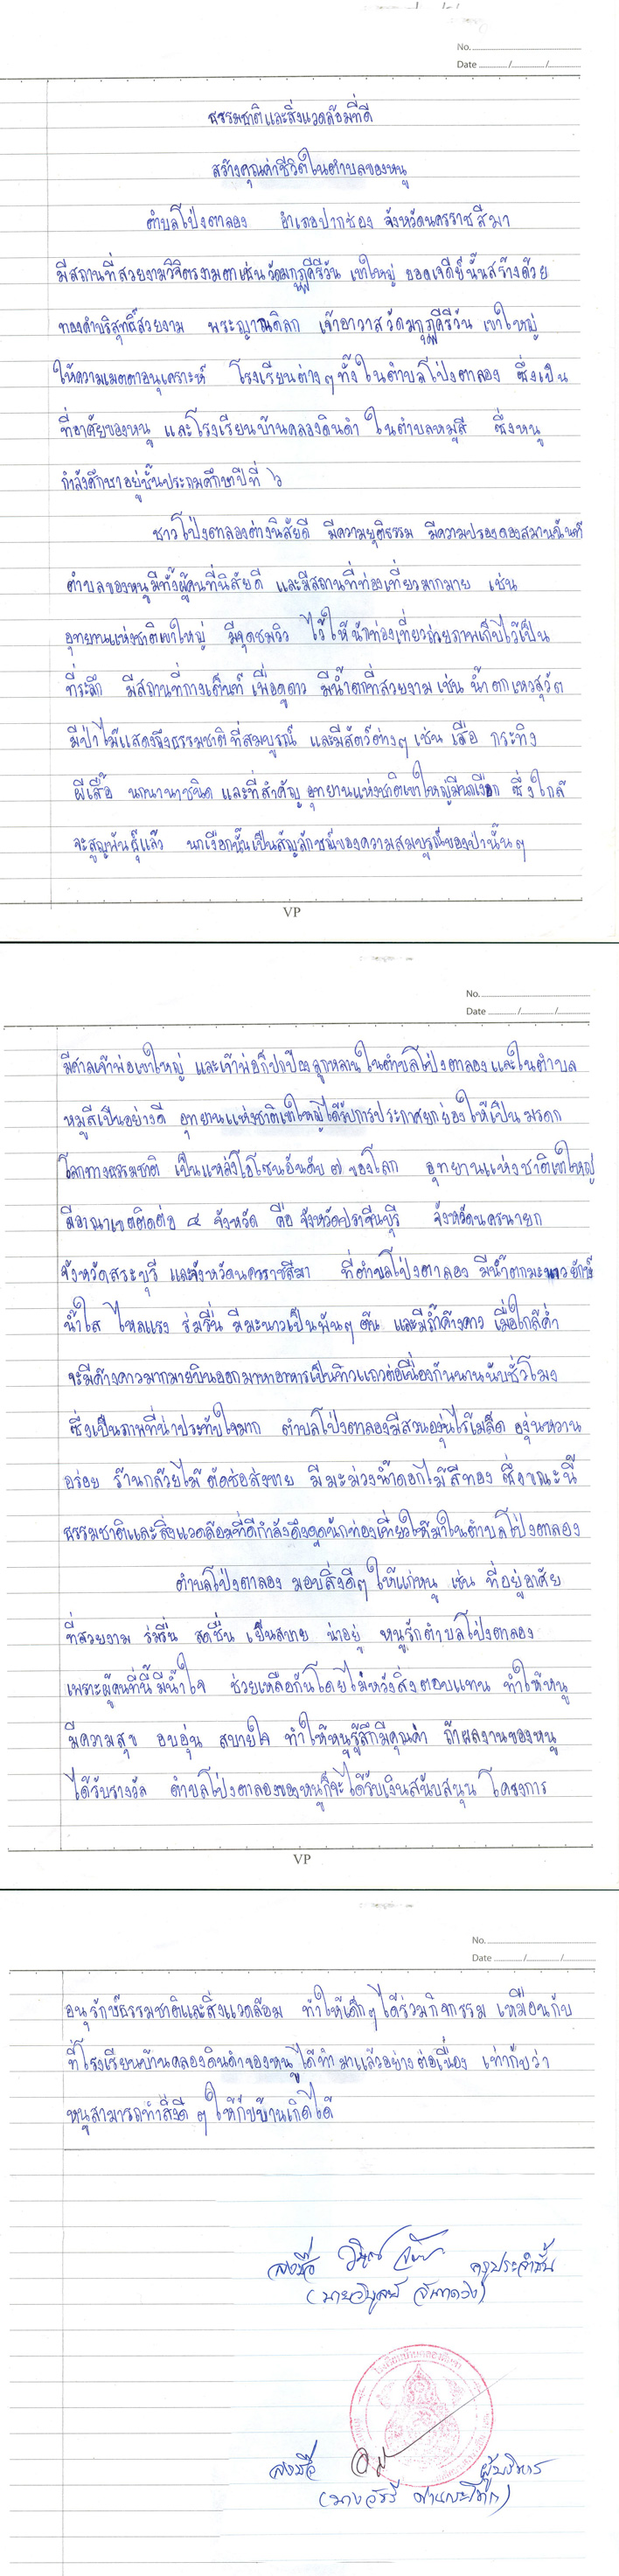 No.
Date / /
ธรรมชาติและสิ่งแวดล้อมที่ดี
สร้างคุณค่าชีวิตในตำบลของหนู
ตำบลโป่งตาลอง อำเภอปากช่อง จังหวัดนครราชสีมา
มีสถานที่สวยงามวิจิตรงามตาเช่นวัดมกุฏคีรีวัน เขาใหญ่ ยอดเจดีย์นั้นสร้างด้วย
ทองคำบริสุทธิ์สวยงาม พระญาณดิลก เจ้าอาวาสวัดมกุฏคีรีวัน เขาใหญ่
ให้ความเมตตาอนุเคราะห์ โรงเรียนต่างๆทั้งในตำบลโป่งตาลอง ซึ่งเป็น
ที่อาศัยของหนู และโรงเรียนบ้านคลองดินดำ ในตำบลหมูสี ซึ่งหนู
กำลังศึกษาอยู่ชั้นประถมศึกษาปีที่ ๖
ชาวโป่งตาลองต่างนิสัยดี มีความยุติธรรม มีความปรองดองสมานฉันท์
ตำบลของหนูมีทั้งผู้คนที่นิสัยดี และมีสถานที่ท่องเที่ยวมากมาย เช่น
อุทยานแห่งชาติเขาใหญ่ มีจุดชมวิว ไว้ให้นักท่องเที่ยวถ่ายภาพเก็บไว้เป็น
ที่ระลึก มีสถานที่กางเต็นท์ เพื่อดูดาว มีน้ำตกที่สวยงาม เช่น น้ำตกเหวสุวัต
มีป่าไม้แสดงถึงธรรมชาติที่สมบูรณ์ และมีสัตว์ต่างๆ เช่น เสือ กระทิง
ผีเสื้อ นกนานาชนิด และที่สำคัญ อุทยานแห่งชาติเขาใหญ่มีนกเงือก ซึ่งใกล้
จะสูญพันธุ์แล้ว นกเงือกนั้นเป็นสัญลักษณ์ของความสมบูรณ์ของป่านั้นๆ
VP
No.
Date / /
มีศาลเจ้าพ่อเขาใหญ่ และเจ้าพ่อก็ปกป้องลูกหลานในตำบลโป่งตาลองและในตำบล
หมูสีเป็นอย่างดี อุทยานแห่งชาติเขาใหญ่ได้รับการประกาศยกย่องให้เป็น มรดก
โลกทางธรรมชาติ เป็นแหล่งโอโซนอันดับ ๗ ของโลก อุทยานแห่งชาติเขาใหญ่
มีอาณาเขตติดต่อ ๔ จังหวัด คือ จังหวัดปราจีนบุรี จังหวัดนครนายก
จังหวัดสระบุรี และจังหวัดนครราชสีมา ที่ตำบลโป่งตาลอง มีน้ำตกมะนาวยักษ์
น้ำใส ไหลแรง ร่มรื่น มีมะนาวเป็นพันๆ ต้น และมีถ้ำค้างคาว เมื่อใกล้ค่ำ
จะมีค้างคาวมากมายบินออกมาหาอาหารเป็นทิวแถวต่อเนื่องกันนานนับชั่วโมง
ซึ่งเป็นภาพที่น่าประทับใจมาก ตำบลโป่งตาลองมีสวนองุ่นไร้เมล็ด องุ่นหวาน
อร่อย ร้านกล้วยไม้ ตัดช่อส่งขาย มีมะม่วงน้ำดอกไม้สีทอง ซึ่งขณะนี้
ธรรมชาติและสิ่งแวดล้อมที่ดีกำลังดึงดูดนักท่องเที่ยวให้มาในตำบลโป่งตาลอง
ตำบลโป่งตาลอง มอบสิ่งดีๆ ให้แก่หนู เช่น ที่อยู่อาศัย
ที่สวยงาม ร่มรื่น สดชื่น เย็นสบาย น่าอยู่ หนูรักตำบลโป่งตาลอง
เพราะผู้คนที่นี้มีน้ำใจ ช่วยเหลือกันโดยไม่หวังสิ่งตอบแทน ทำให้หนู
มีความสุข อบอุ่น สบายใจ ทำให้หนูรู้สึกมีคุณค่า ถ้าผลงานของหนู
ได้รับรางวัล ตำบลโป่งตาลองของหนูก็จะได้รับเงินสนับสนุน โครงการ
VP
No.
Date / /
อนุรักษ์ธรรมชาติและสิ่งแวดล้อม ทำให้เด็กๆ ได้ร่วมกิจกรรม เหมือนกับ
ที่โรงเรียนบ้านคลองดินดำของหนูได้ทำมาแล้วอย่างต่อเนื่อง เท่ากับว่า
หนูสามารถทำสิ่งดีๆ ให้กับบ้านเกิดได้
ลงชื่อ ครูประจำชั้น
ลงชื่อ ผู้บริหาร